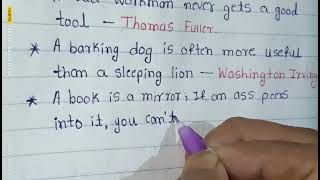 workman never gets a good
tool — Thomas Fuller.
* A barking dog is often more useful
than a sleeping lion — Washington Irving
* A book is a mirror; If an ass peers
into it, you can't